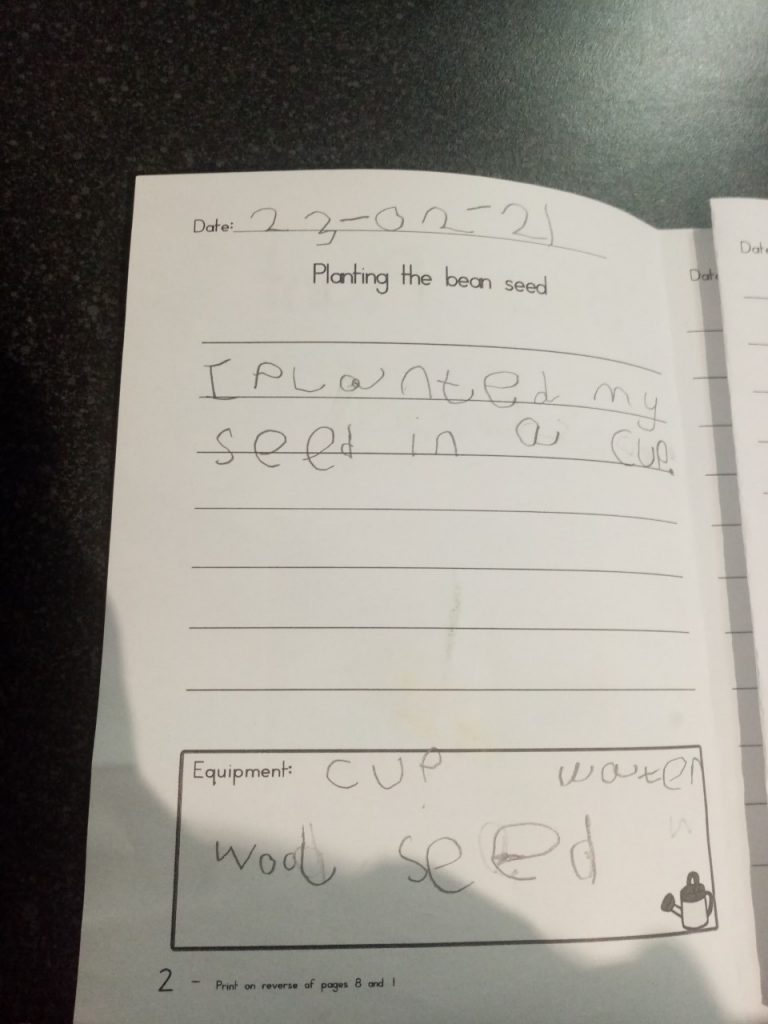 Date: 23-02-21
Planting the bean seed
I planted my
seed in a cup.
Equipment: cup water
wool seed
2 - Print on reverse of pages 8 and 1
Date
Date